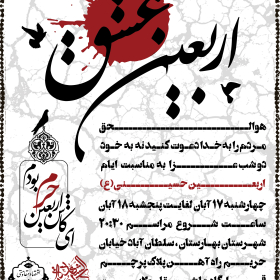 اربعین عشق
هوالحق
مردم را به خدا دعوت کنید نه به خود
دو شب عزا به مناسبت ایام
اربعین حسینی (ع)
چهارشنبه ۱۷ آبان لغایت پنجشبه ۱۸ آبان
ساعت شروع مراسم ۲۰:۳۰
شهرستان بهارستان ، سلطان آباد خیابان
حریم راه آهن پلاک پرچم
ای کاش اربعین حرم بودم